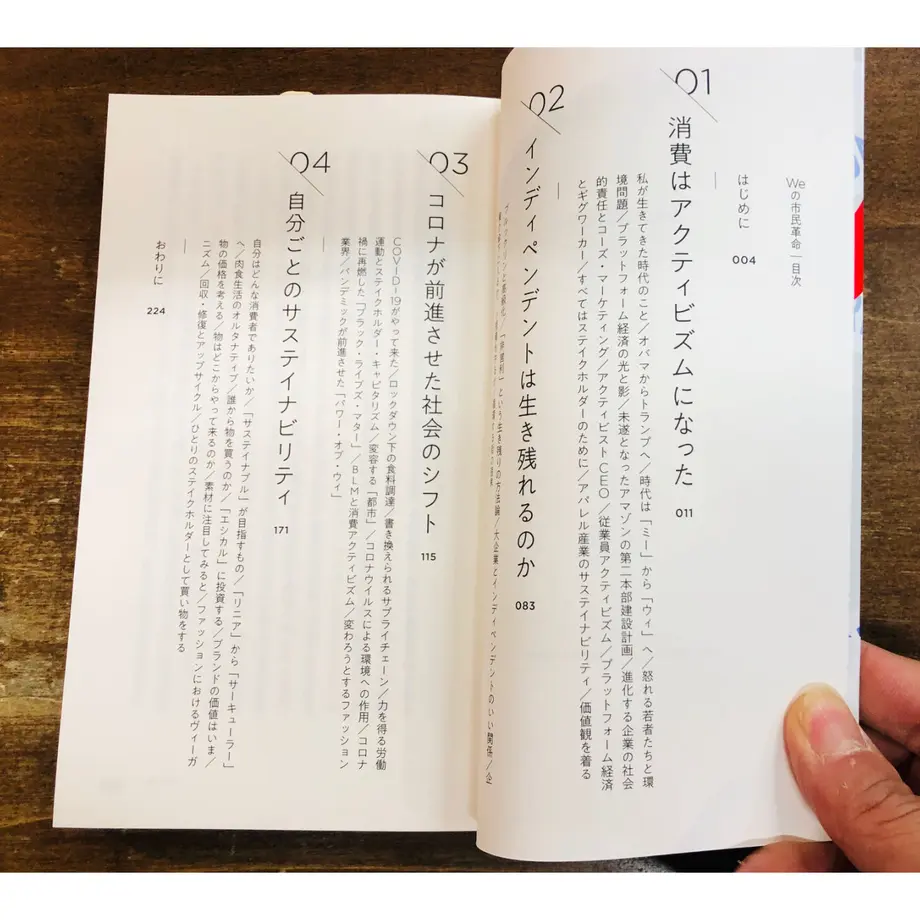 Weの市民革命｜目次
はじめに
004
01
消費はアクティビズムになった
011
私が生きてきた時代のこと／オバマからトランプへ／時代は「ミー」から「ウィ」へ／怒れる若者たちと環
境問題／プラットフォーム経済の光と影／未遂となったアマゾンの第二本部建設計画／進化する企業の社会
的責任とコーズ・マーケティング／アクティビストCEO／従業員アクティビズム／プラットフォーム経済
とギグワーカー／すべてはステイクホルダーのために／アパレル産業のサステイナビリティ／価値観を着る
02
インディペンデントは生き残れるのか
083
という生き残りの方法論／大企業とインディペンデントのいい関係／企
03
コロナが前進させた社会のシフト
115
COVID-19がやって来た／ロックダウン下の食料調達／書き換えられるサプライチェーン／力を得る労働
運動とステイクホルダー・キャピタリズム／変容する「都市」／コロナウイルスによる環境への作用／コロナ
禍に再燃した「ブラック・ライブズ・マター」／BLMと消費アクティビズム／変わろうとするファッション
業界／パンデミックが前進させた「パワー・オブ・ウィ」
04
自分ごとのサステイナビリティ
171
自分はどんな消費者でありたいか／「サステイナブル」が目指すもの／「リニア」から「サーキュラー」
へ／肉食生活のオルタナティブ／誰から物を買うのか／「エシカル」に投資する／ブランドの価値はいま／
物の価格を考える／物はどこからやって来るのか／素材に注目してみると／ファッションにおけるヴィーガ
ニズム／回収・修復とアップサイクル／ひとりのステイクホルダーとして買い物をする
おわりに
224